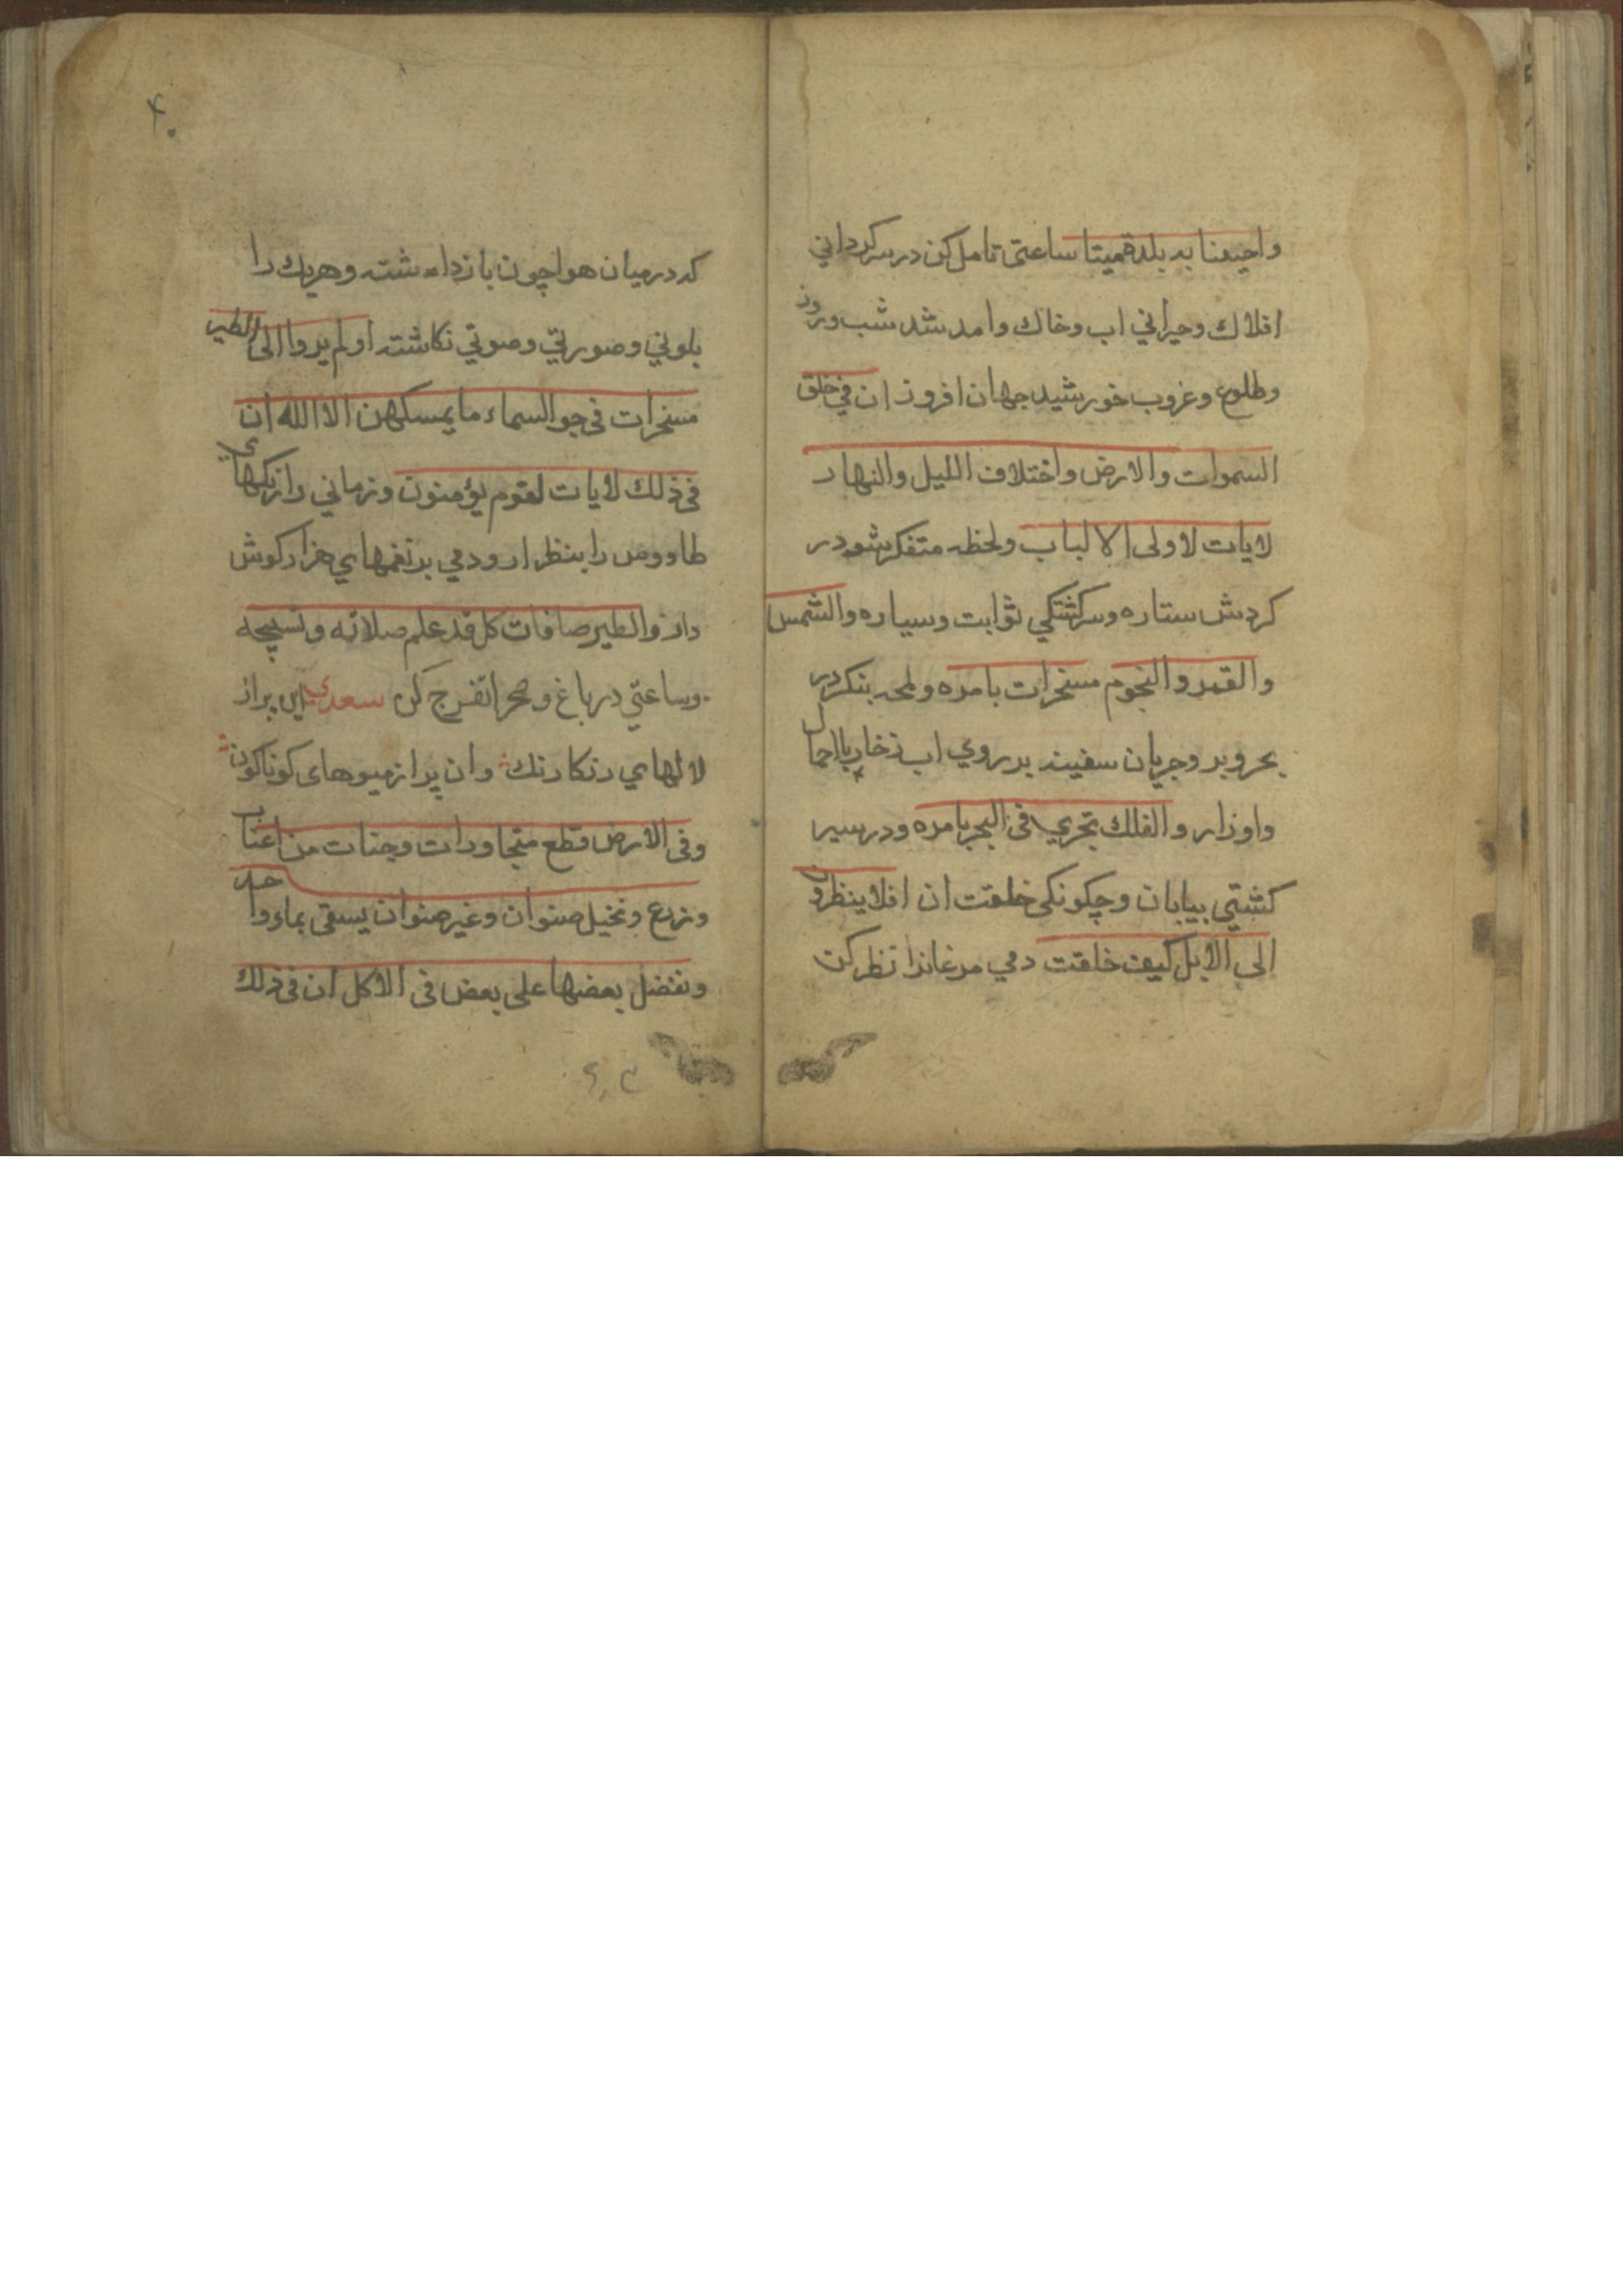 واحیینا به بلدة میتا ساعتی تامل کن در سرکردانی
افلاك وحیرانی اب وخاك وامد شد شب وروز
وطلوع وغروب خورشید جهان افروز ان فی خلق
السموات والارض واختلاف اللیل والنهار
لایات لاولی الالباب ولحظه متفکر شو در
کردش ستاره وسرکشتکی ثوابت وسیاره والشمس
والقمر والنجوم مسخرات بامره ولمحه بنکر در
بحر وبر وجریان سفینه بر روی اب زخار بااحمال
واوزار والفلك تجری فی البحر بامره ودر سیر
کشتی بیابان وچکونکی خلقت ان افلا ینظرون
الی الابل کیف خلقت دمی مرغانرا نظر کن
که در میان هوا چون باز داشته وهریك را
بلونی وصورتی وصوتی نکاشته اولم یروا الی الطیر
مسخرات فی جو السماء ما یمسکهن الا الله ان
فی ذلك لایات لقوم یؤمنون وزمانی رازنکهای
طاووس را بنظر ار ودمی بر نغمهای هزار کوش
دار والطیر صافات کل قد علم صلاته وتسبیحه
وساعتی در باغ وصحرا تفرج کن سعدی این پر از
لالهای رنکارنك وان پر از میوهای کوناکون
وفی الارض قطع متجاورات وجنات من اعناب
وزرع ونخیل صنوان وغیر صنوان یسقی بماء واحد
ونفضل بعضها علی بعض فی الاکل ان فی ذلك